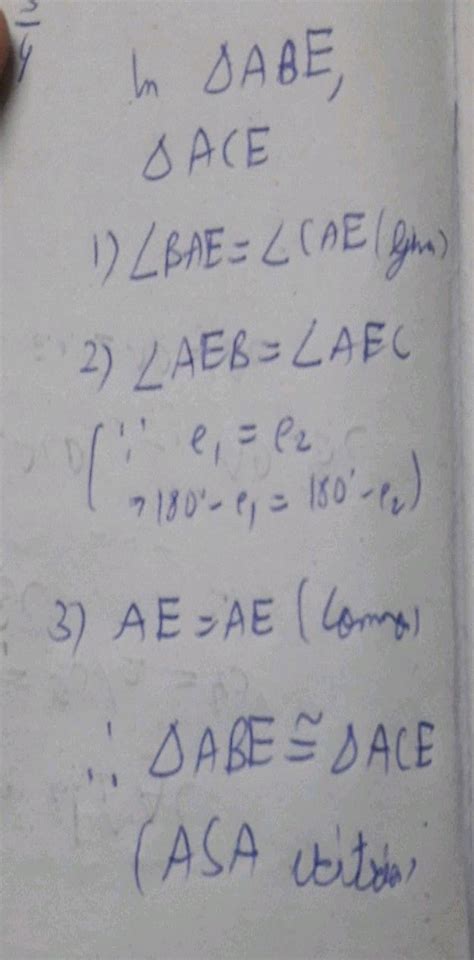 3/4
In ΔABE,
ΔACE
1) ∠BAE = ∠CAE (given)
2) ∠AEB = ∠AEC
(∵ e₁ = e₂
→ 180° - e₁ = 180° - e₂)
3) AE = AE (Common)
∴ ΔABE ≅ ΔACE
(ASA criterion)